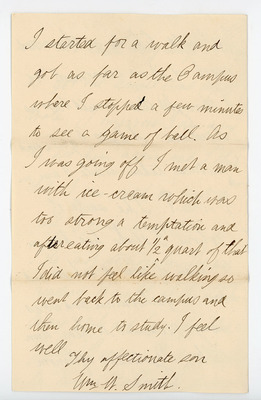 I started for a walk and
got as far as the Campus
where I stopped a few minutes
to see a game of ball. As
I was going off I met a man
with ice-cream which was
too strong a temptation and
after eating about 1/2 a quart of that
I did not feel like walking so
went back to the campus and
then home to study. I feel
well
Thy affectionate son
Wm W. Smith.